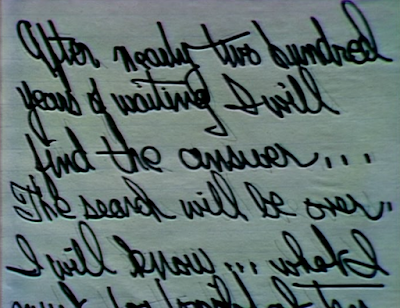 After nearly two hundred
years of waiting I will
find the answer...
The search will be over.
I will know... what I
must